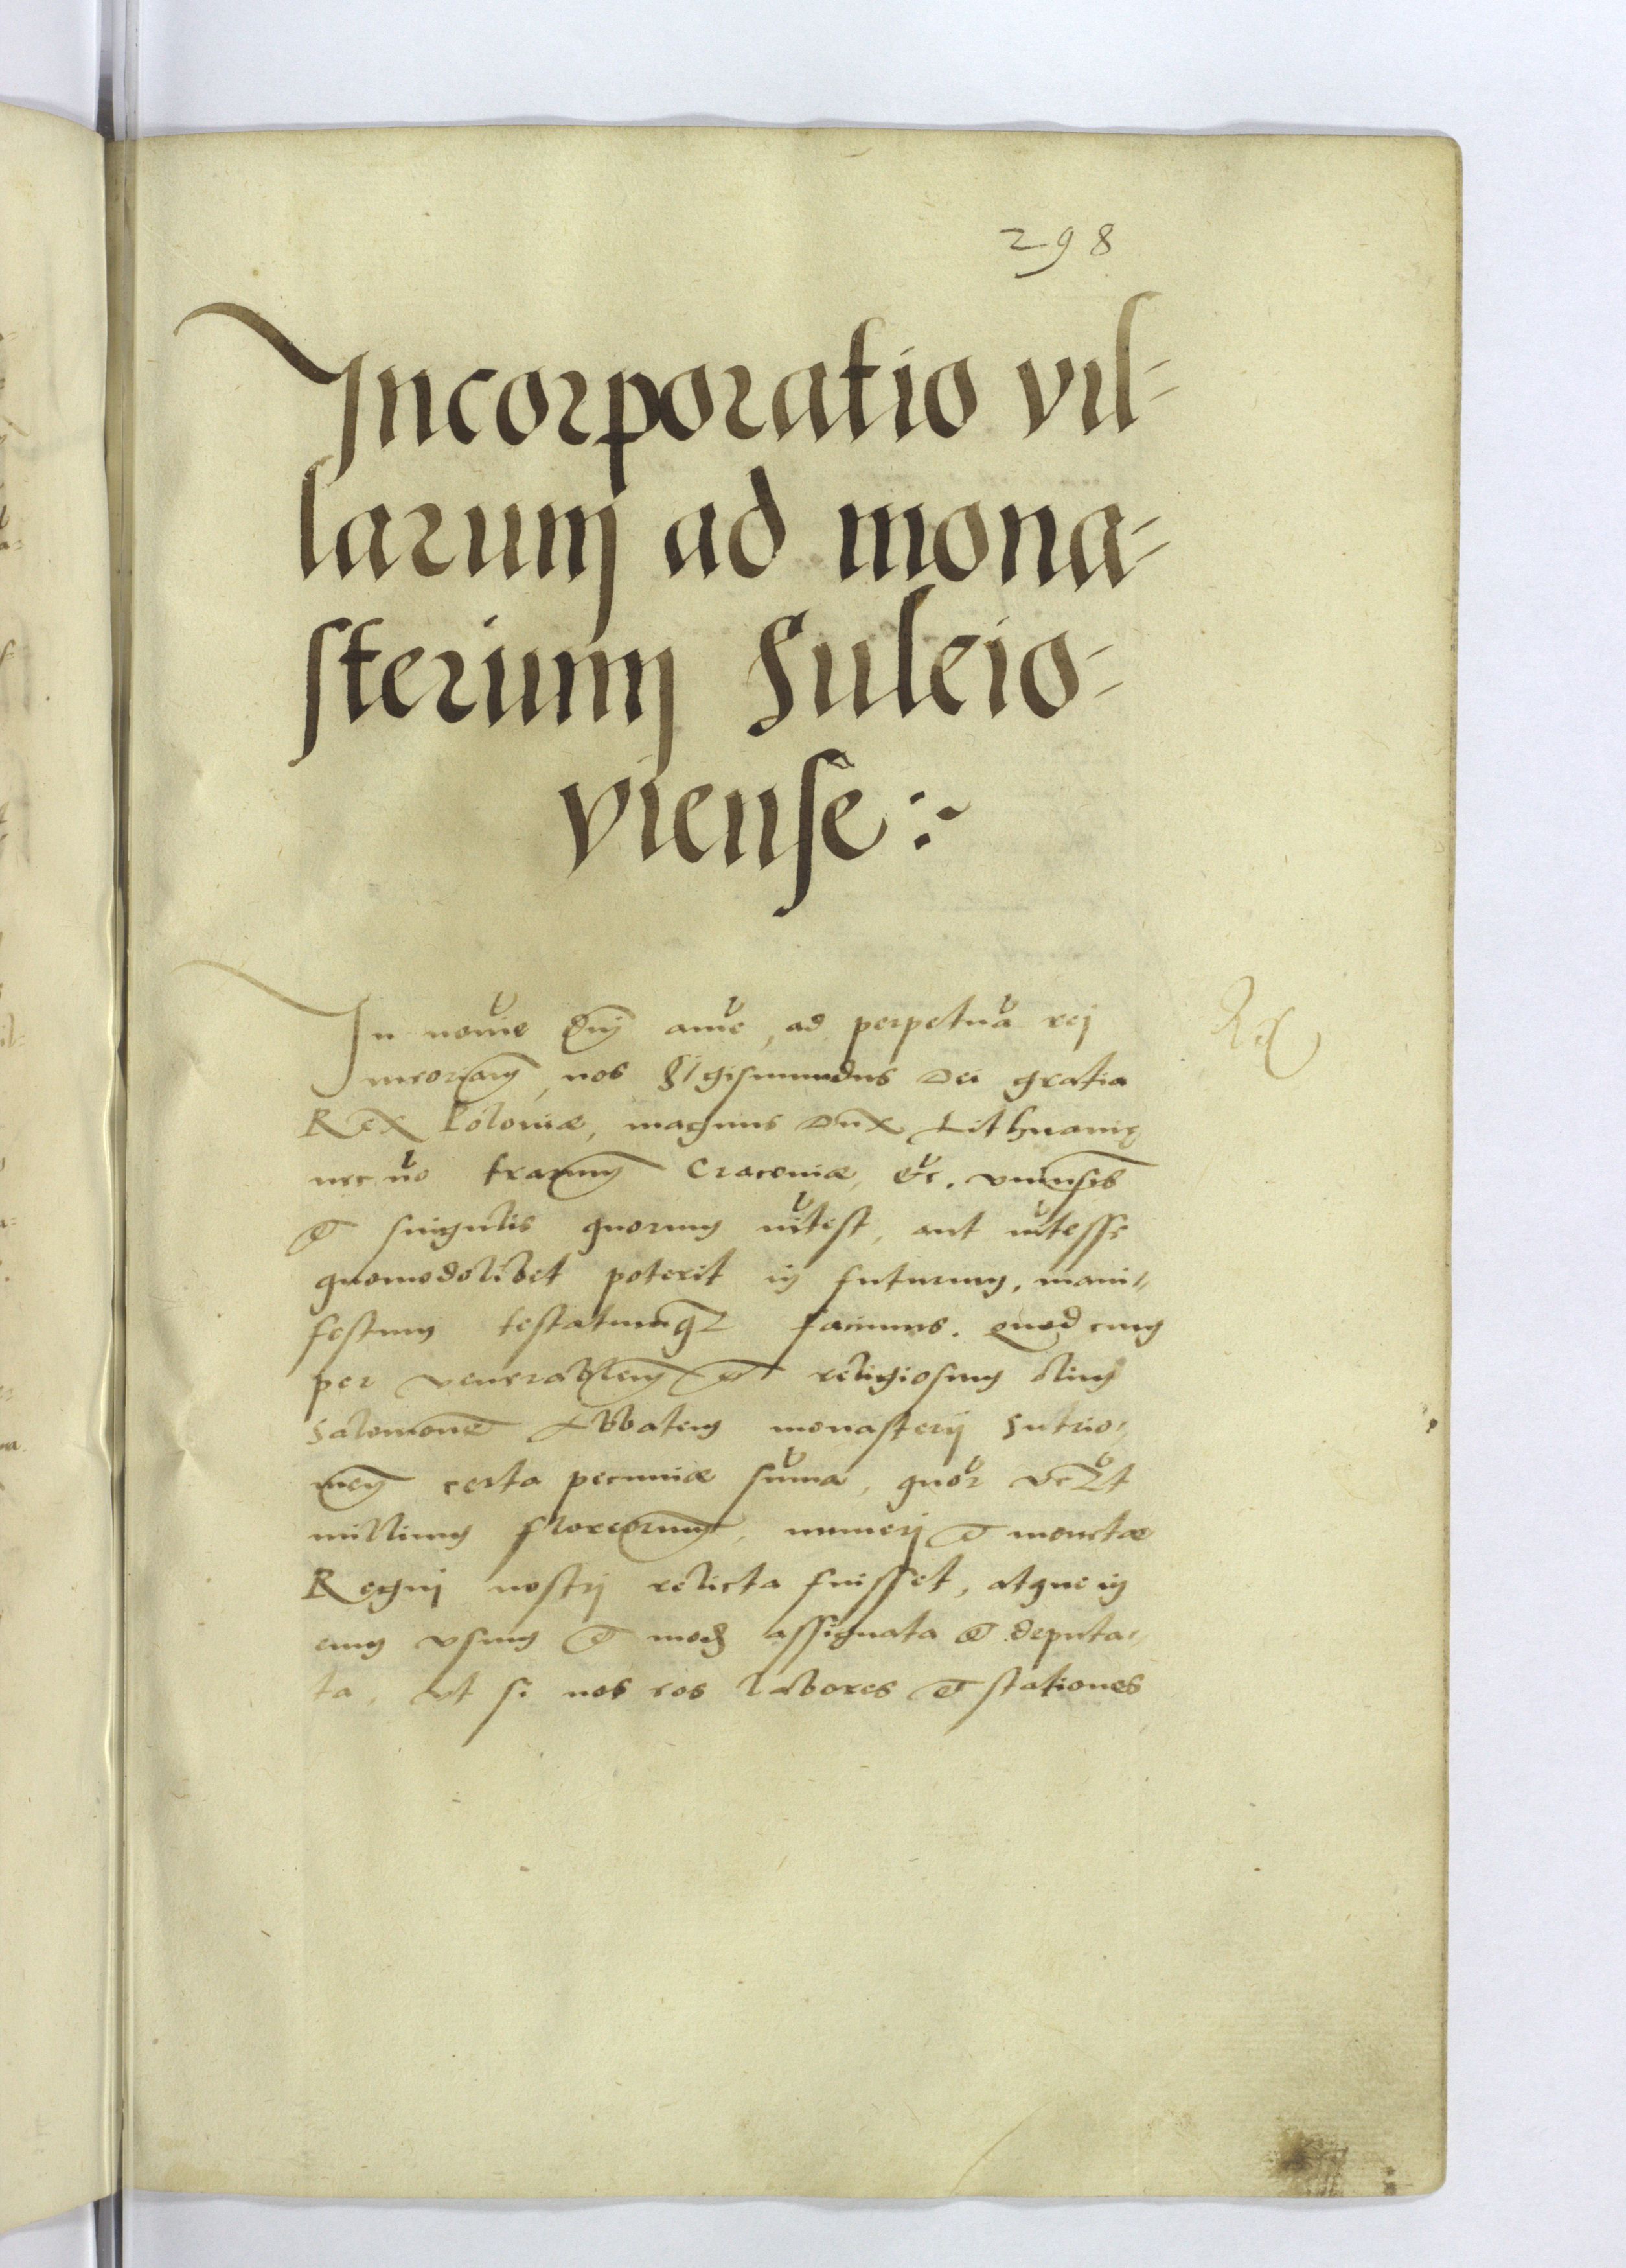 298
Incorporatio vil-
larum ad mona-
sterium Suleio-
viense:~
In noīe dnj amē, ad perpetuā rej
meoriam, nos Sigismundus Dei gratia
Rex Poloniæ, magnus Dux Lithuanię
nec nō trarum Cracoviæ, &c. vniuersis
et singulis quorum int̄est, aut int̄esse
quomodolibet poterit in futurum, mani-
festum testatumq3 facimus. Quod cum
per venerabilem et religiosum olim
Salomonē Abbatem monasterij Sutrio-
certa pecuniæ sūma, quor
millium florenorum, numerj et monetæ
Regnj nostrj relicta fuisset, atque in
eum vsum et mod assignata et deputa-
ta, vt si nos eos labores et stationes